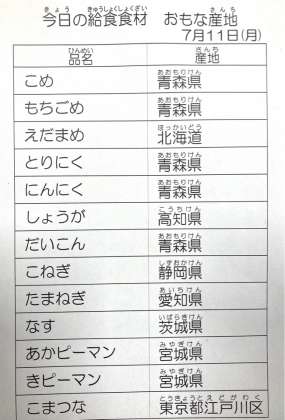 今日の給食食材 おもな産地
7月11日(月)
品名 産地
こめ 青森県
もちごめ 青森県
えだまめ 北海道
とりにく 青森県
にんにく 青森県
しょうが 高知県
だいこん 青森県
こねぎ 静岡県
たまねぎ 愛知県
なす 茨城県
あかピーマン 宮城県
きピーマン 宮城県
こまつな 東京都江戸川区